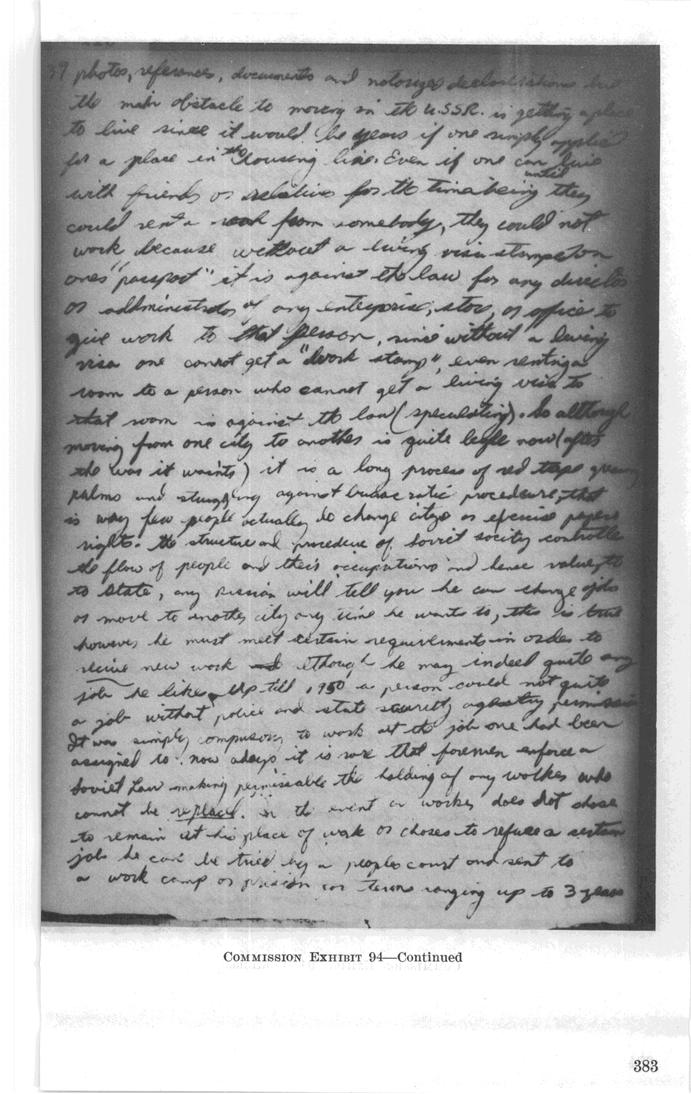 39 photos, references, documents and notorized declarations but
the main obstacle to moving in the U.S.S.R. is getting a place
to live since it would be years if one simply applied
for a place in the housing line. Even if one can live
until
with friends or relatives for the time being they
could rent a room from somebody, they could not
work because without a living visa stamped on
ones "passport" it is against the law for any director
or addministrator of any enterprise, store, or office to
give work to that person, since without a living
visa one cannot get a "work stamp", even renting a
room to a person who cannot get a living visa to
that room is against the law (speculating). So although
moving from one city to another is quite legle now (after
the war it wasn't) it is a long process of red tape
palms and struggling against procedure, that
is way few people actually do change citys or
rights. the structure and procedure of Soviet society controlls
the flow of people and their occupations and hence
to State, any Russian will tell you he can change jobs
or move to another city any time he wants to, this is true
however he must meet certain requirements in order to
recive new work although he may indeed quite any
job he likes. Up till 1950 a person could not quite
a job without police and state security permission
It was simply compulsory to work at the job one had been
assigned to. now adays it is rare that foremen enforce a
Soviet Law making permissable the holding of any worker who
cannot be replaced. in the event a worker does not chose
to remain at his place of work or choses to refuse a certain
job he can be tried by a peoples court and sent to
a work camp or prision for terms ranging up to 3 years
COMMISSION EXHIBIT 94—Continued
383